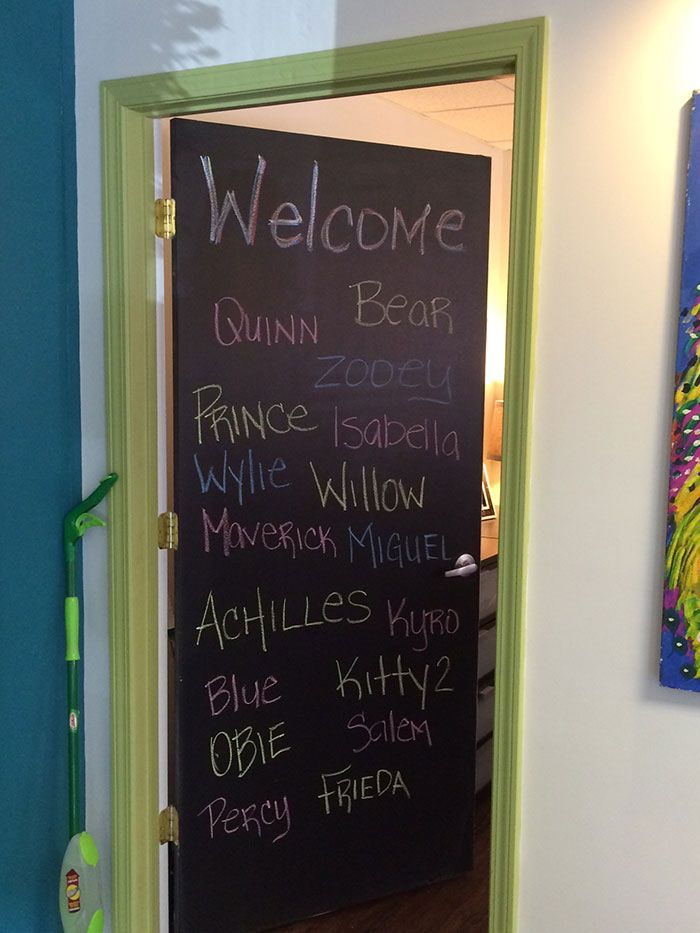 Welcome
Quinn Bear
Zooey
Prince Isabella
Wylie Willow
Maverick Miguel
Achilles Kyro
Blue Kitty2
Obie Salem
Percy Frieda